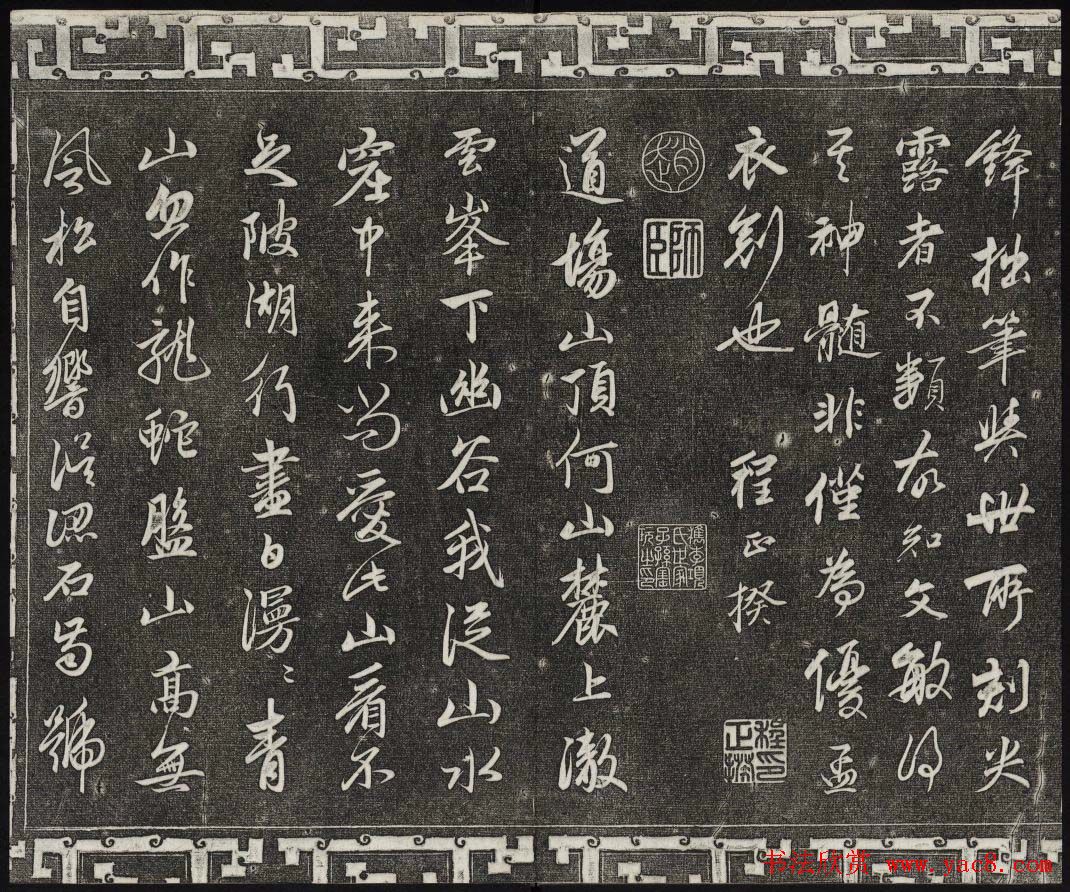 鋒拙筆與世所刻尖
露者不類故知文敏得
其神髓非僅為優孟
衣冠也 程正揆
道場山頂何山麓上澈
雲峯下幽谷我從山水
窟中來尚愛此山看不
足陂湖行盡白漫〻青
山忽作龍蛇盤山高無
風松自響誤認石齒號
书法欣赏 www.yac8.com